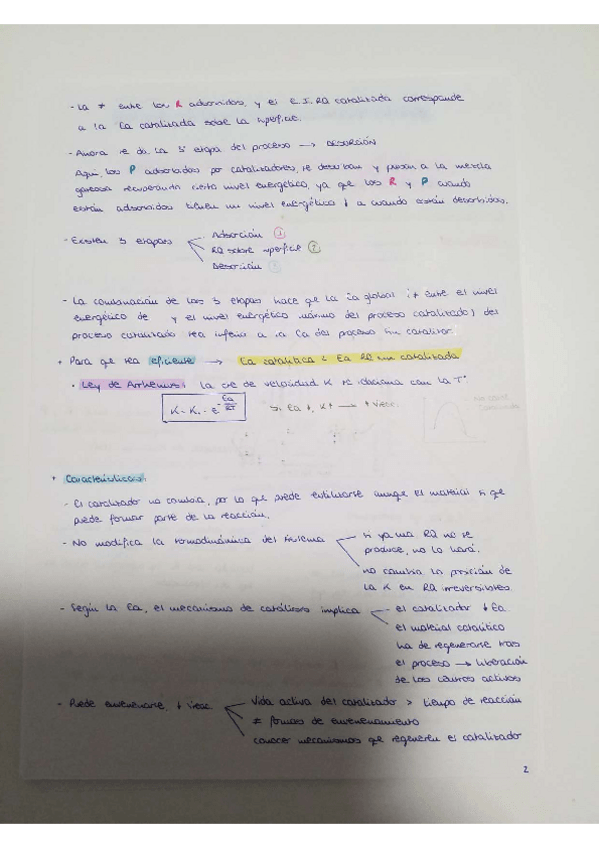 - La ≠ entre los R adsorbidos, y el E.S. RQ catalizada corresponde
a la Ea catalizada sobre la superficie.
- Ahora se da la 3ª etapa del proceso → DESORCIÓN
Aquí, los P adsorbidos por catalizadores, se desorban y pasan a la mezcla
gaseosa recuperando cierto nivel energético, ya que los R y P cuando
están adsorbidos tienen un nivel energético ↓ a cuando están desorbidos.
- Existen 3 etapas
Adsorción ①
RQ sobre superficie ②
Desorción ③
- La combinación de las 3 etapas hace que la Ea global (≠ entre el nivel
energético de y el nivel energético máximo del proceso catalizado) del
proceso catalizado sea inferior a la Ea del proceso sin catalizar.
• Para que sea eficiente → Ea catalítica < Ea RQ sin catalizada
• Ley de Arrhenius: la cte de velocidad K se relaciona con la Tª
K = K₀ · e^-Ea/RT
Si Ea ↓, K↑ → ↑ Vreac.
• Características:
- El catalizador no cambia, por lo que puede reutilizarse aunque el material sí que
puede formar parte de la reacción.
- No modifica la termodinámica del sistema
si ya una RQ no se
produce, no lo hará.
no cambia la posición de
la K en RQ irreversibles.
- Según la Ea, el mecanismo de catálisis implica
el catalizador ↓ Ea
el material catalítico
ha de regenerarse tras
el proceso → liberación
de los centros activos
- Puede envenenarse, ↓ Vreac
Vida activa del catalizador > tiempo de reacción
≠ formas de envenenamiento
conocer mecanismos que regeneren el catalizador
2